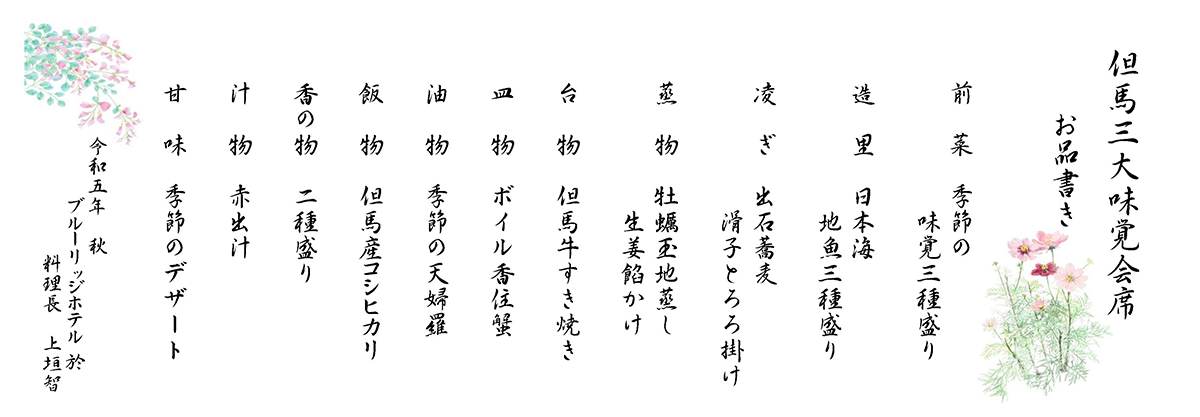 但馬三大味覚会席
お品書き
前菜 季節の
味覚三種盛り
造里 日本海
地魚三種盛り
凌ぎ 出石蕎麦
滑子とろろ掛け
蒸物 牡蠣玉地蒸し
生姜餡かけ
台物 但馬牛すき焼き
皿物 ボイル香住蟹
油物 季節の天婦羅
飯物 但馬産コシヒカリ
香の物 二種盛り
汁物 赤出汁
甘味 季節のデザート
令和五年 秋
ブルーリッジホテル 於
料理長 上垣智